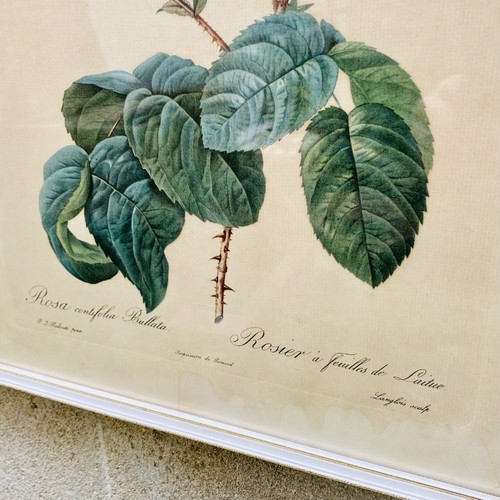 Rosa centifolia Bullata.
P. J. Redouté pinx.
Imprimerie de Rémond
Rosier à Feuilles de Laitue
Langlois sculp.